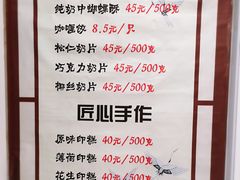 纯奶中蝴蝶酥 45元/500克
咖喱饺 8.5元/只
松仁奶片 45元/500克
巧克力奶片 45元/500克
椰丝奶片 45元/500克
匠心手作
原味印糕 40元/500克
薄荷印糕 40元/500克
花生印糕 40元/500克